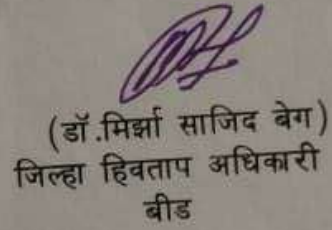 (डॉ.मिर्झा साजिद बेग)
जिल्हा हिवताप अधिकारी
बीड